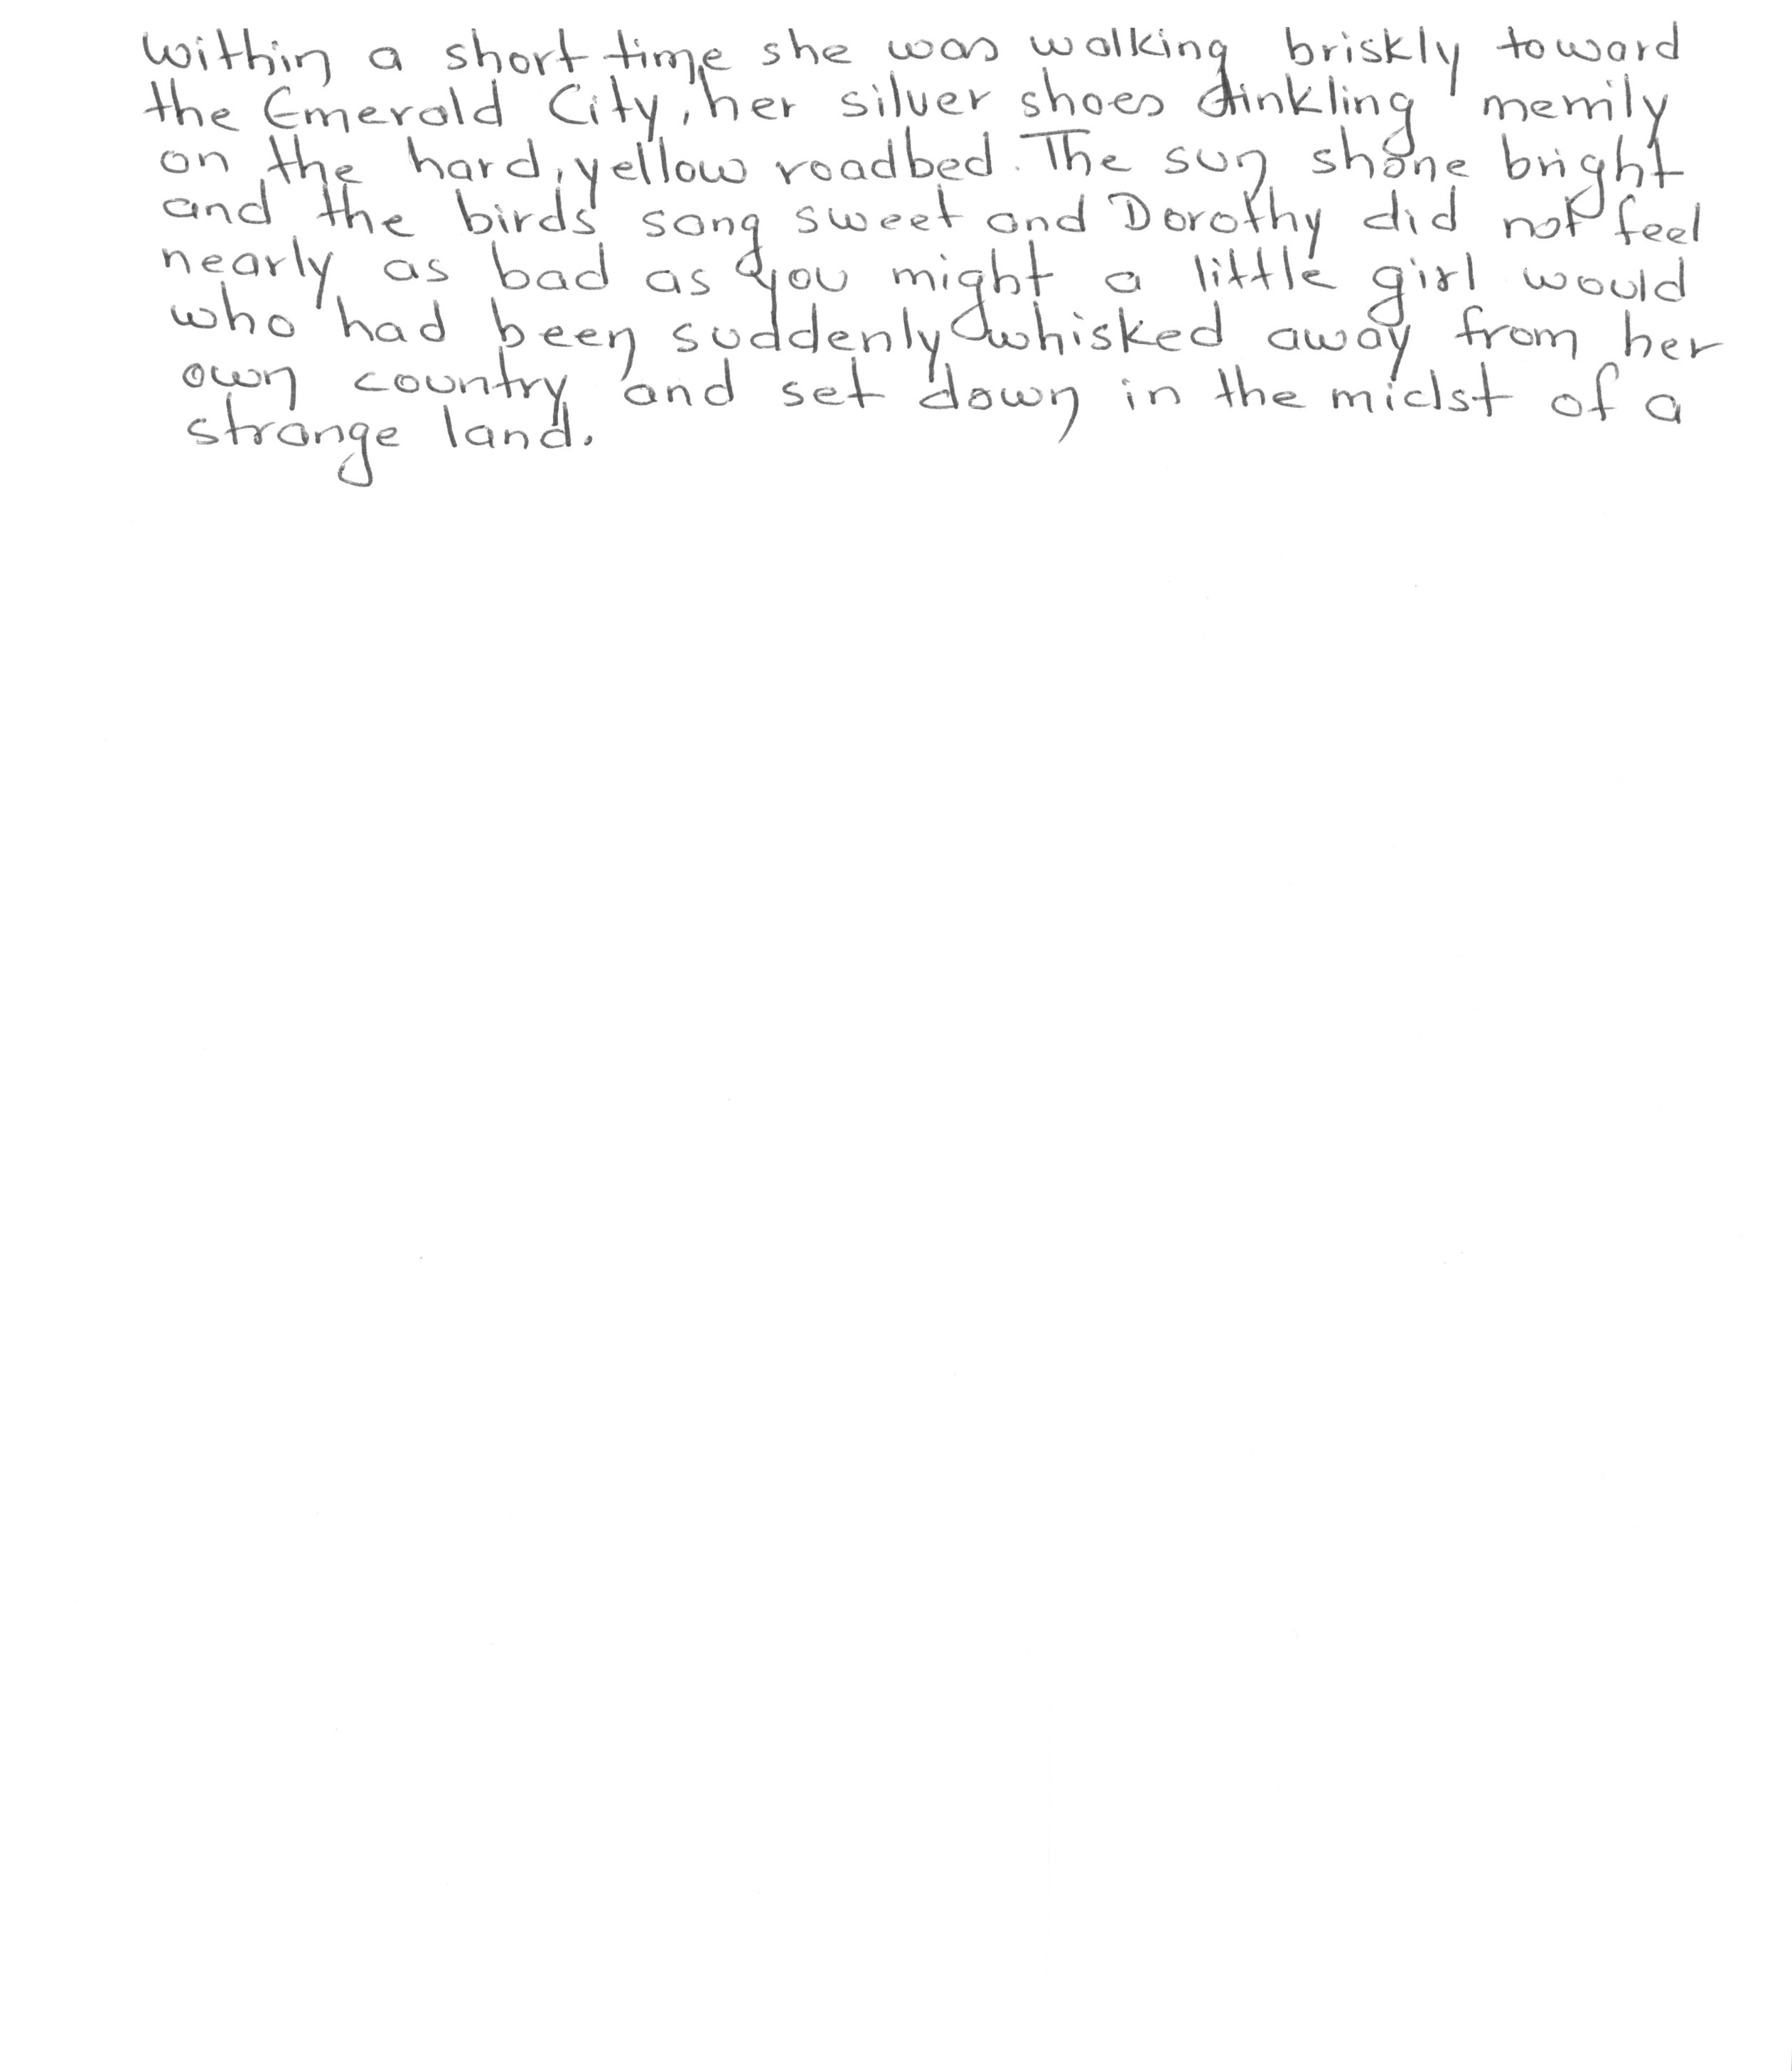 Within a short time she was walking briskly toward
the Emerald City, her silver shoes tinkling merrily
on the hard, yellow roadbed. The sun shone bright
and the birds sang sweet and Dorothy did not feel
nearly as bad as you might a little girl would
who had been suddenly whisked away from her
own country and set down in the midst of a
strange land.